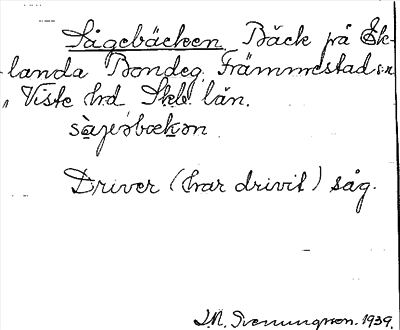 Sågebäcken Bäck på Ek-
landa Bondeg. Främmestad sn
" Viste hrd Skb. län.
Driver (har drivit) såg.
1939.